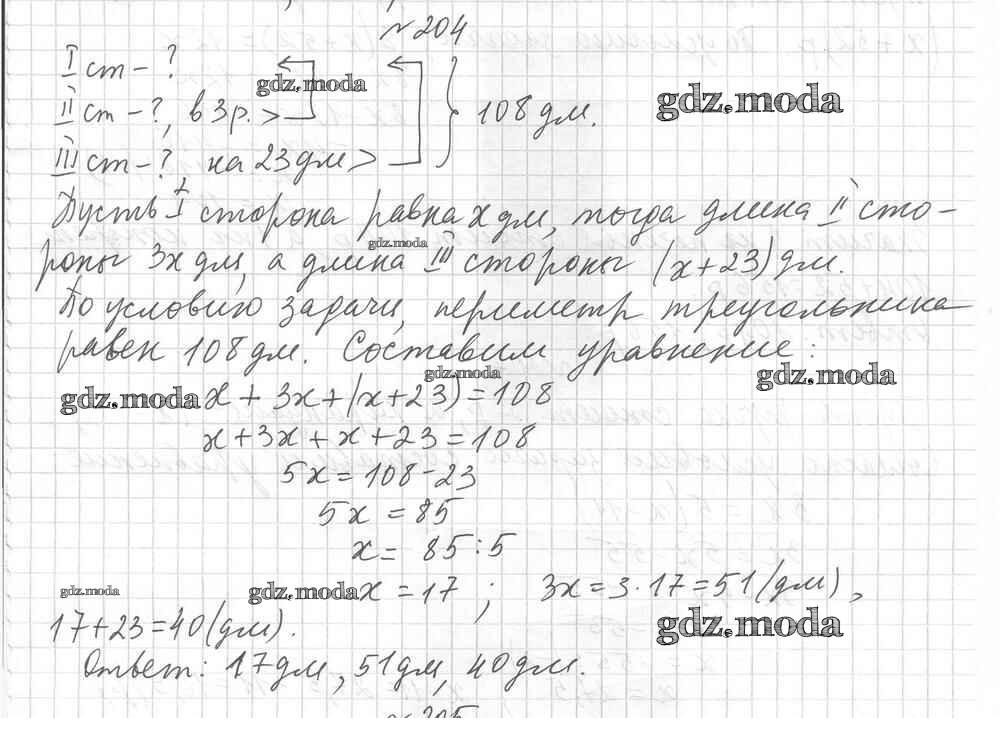 №204
I ст - ?
gdz.moda
gdz.moda
II ст - ?, в 3 р. >
108 дм.
III ст - ?, на 23 дм >
Пусть I сторона равна x дм, тогда длина II сто-
gdz.moda
роны 3x дм, а длина III стороны (x+23) дм.
По условию задачи, периметр треугольника
равен 108 дм. Составим уравнение:
gdz.moda
gdz.moda
gdz.moda x + 3x + (x+23) = 108
x + 3x + x + 23 = 108
5x = 108 - 23
5x = 85
x = 85 : 5
gdz.moda gdz.moda x = 17 ; 3x = 3 · 17 = 51 (дм),
17 + 23 = 40 (дм). gdz.moda
Ответ: 17 дм, 51 дм, 40 дм.
№205